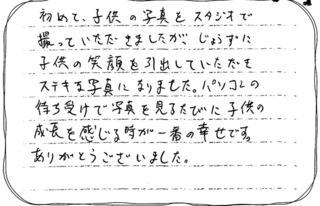 初めて、子供の写真をスタジオで
撮っていただきましたが、じょうずに
子供の笑顔を引出していただき
ステキな写真になりました。パソコンの
待ち受けで写真を見るたびに子供の
成長を感じる時が一番の幸せです。
ありがとうございました。